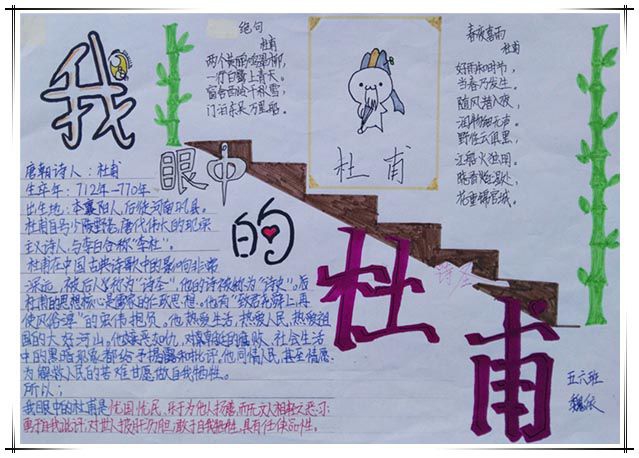 我
眼中
的
杜甫
诗圣
绝句
杜甫
两个黄鹂鸣翠柳，
一行白鹭上青天。
窗含西岭千秋雪，
门泊东吴万里船。
杜甫
春夜喜雨
杜甫
好雨知时节，
当春乃发生。
随风潜入夜，
润物细无声。
野径云俱黑，
江船火独明。
晓看红湿处，
花重锦官城。
唐朝诗人：杜甫
生卒年：712年-770年
出生地：本襄阳人，后徙河南巩县。
杜甫自号少陵野老，唐代伟大的现实
主义诗人，与李白合称“李杜”。
杜甫在中国古典诗歌中的影响非常
深远，被后人称为“诗圣”，他的诗被称为“诗史”。
杜甫的思想核心是儒家的仁政思想。他有“致君尧舜上，再
使风俗淳”的宏伟抱负。他热爱生活，热爱人民，热爱祖
国的大好河山。他嫉恶如仇，对朝廷的腐败、社会生活
中的黑暗现象都给予揭露和批评。他同情人民，甚至情愿
为解救人民的苦难甘愿做自我牺牲。
所以：
我眼中的杜甫是忧国忧民，乐于为他人扬善，而无文人相轻之恶习；
勇于自我批评，对世人披肝沥胆，敢于自我牺牲，具有任侠品性。
五六班
魏依